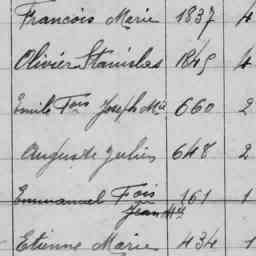 Francois Marie 1837 4
Olivier Stanislas 1845 4
Emile Fois Joseph Mie 660 2
Auguste Julien 648 2
Emmanuel Fois 161 1
Jean Mie
Etienne Marie 434 1